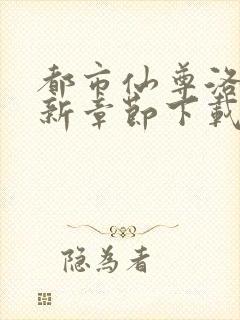 都市仙尊洛
新章节下载
隐为者